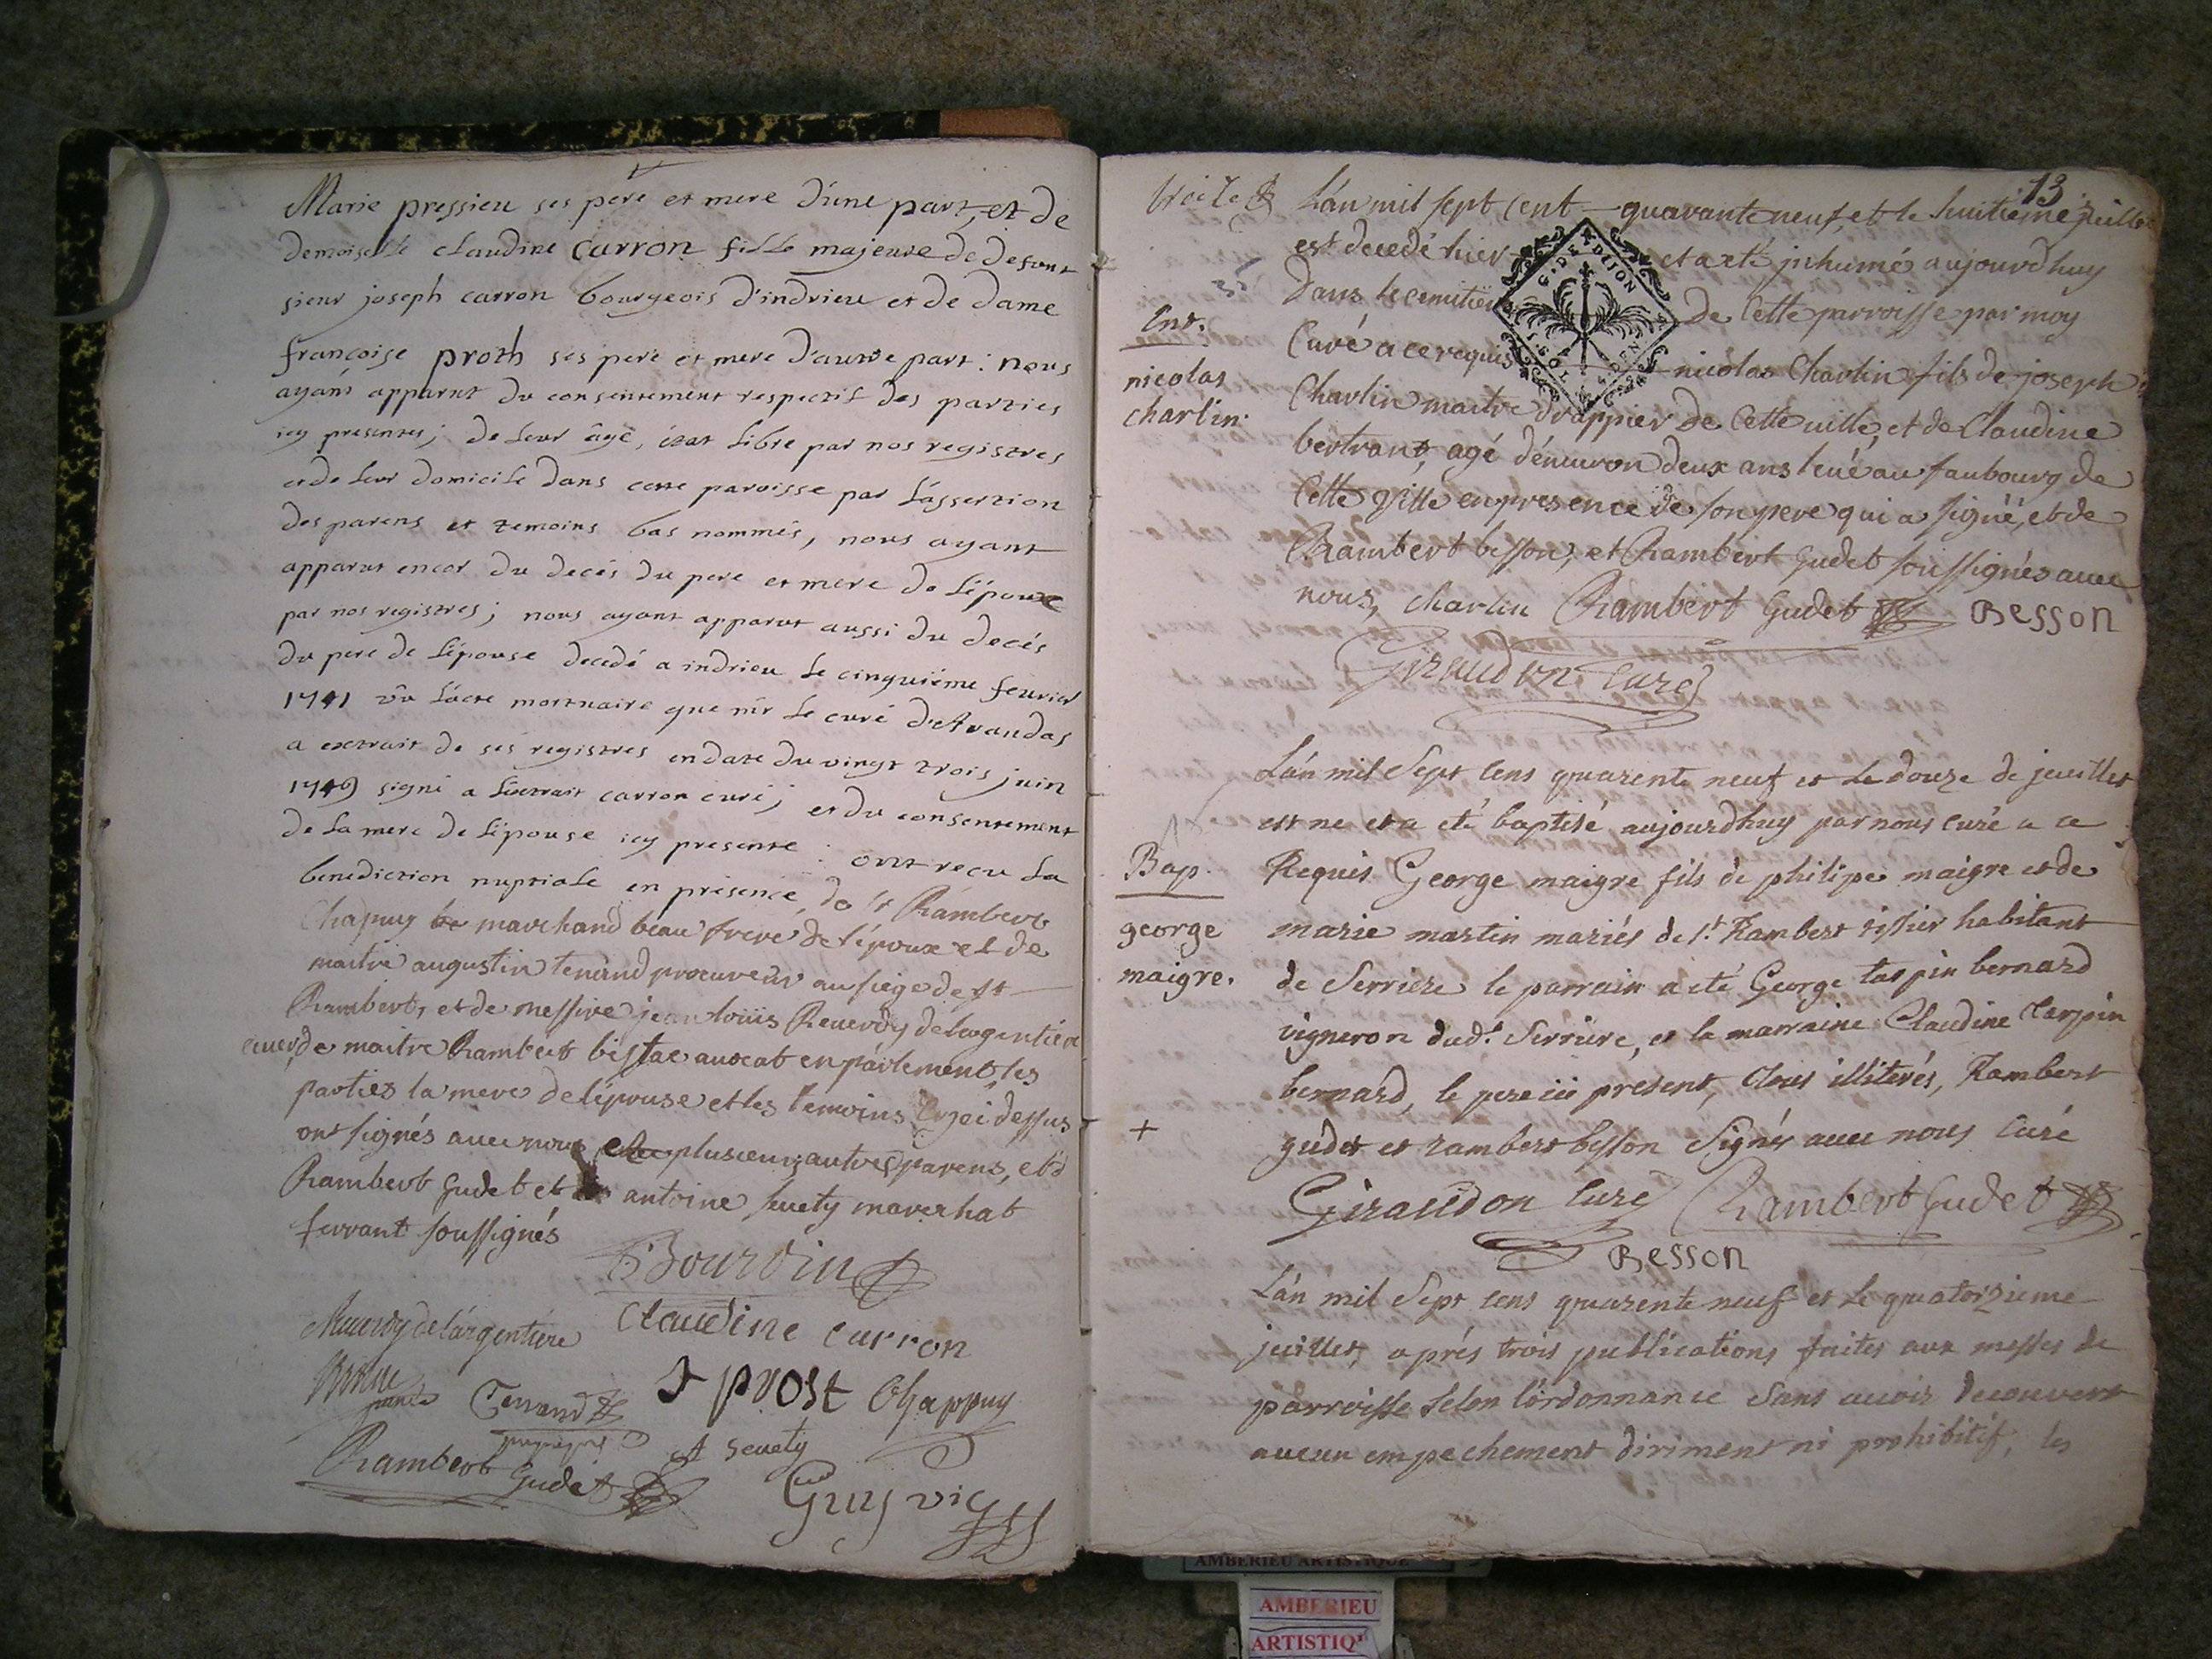 Marie pressieu ses pere et mere d'une part, et de
demoiselle claudine carron fille majeure de defunt
sieur joseph carron bourgeois d'indrieu et de dame
françoise proth ses pere et mere d'autre part : nous
ayant apparut du consentement respectif des parties
icy presentes ; de leur âge, état libre par nos registres
et de leur domicile dans cette paroisse par l'assertion
des parens et temoins bas nommés, nous ayant
apparut encor du decés du pere et mere de l'époux
par nos registres ; nous ayant apparut aussi du decés
du pere de l'épouse decedé a indrieu le cinquiéme fevrier
1741 vû l'acte mortuaire que mr le curé d'Arandas
a extrait de ses registres en date du vingt trois juin
1749 signé a l'extrait carron curé ; et du consentement
de la mere de l'épouse icy presente : ont reçu la
benediction nuptiale en présence, de sr Rambert
Chapuy marchand beau frere de l'époux et de
maitre augustin tenand procureur au siege de st
Rambert, et de messire jean loüis Reverdy de l'argentiere
de maitre Rambert avocat en parlement, les
parties la mere de l'épouse et les temoins dessus
ont signés avec nous plusieurs autres parens, et
Rambert Gudet et antoine sevety marechal
ferrant soussignés
Bourdin
Reverdy de l'argentiere Claudine carron
Tenand prost Chappuy
Rambert Gudet A sevety
Guy vic
13
L'an mil sept cent quarante neuf, et le huitieme juillet
est decedé hier et a eté inhumé aujourdhuy
Dans le cemitiere de Cette parroisse par moy
G. DE DIJON
Ent.
nicolas
charlin.
Curé a ce requis nicolas Charlin fils de joseph
Charlin maitre drappier de Cette ville, et de Claudine
bertrant, agé d'énviron deux ans levé au faubourg de
Cette Ville en presence de son pere qui a signé, et de
Rambert besson, et Rambert Gudet soussignés avec
nous, charlin Rambert Gudet Besson
Giraudon curé
L'an mil Sept Cens quarente neuf et le douze de jeuillet
est ne et a eté baptisé aujourdhuy par nous curé a ce
Bap.
george
maigre.
Requis George maigre fils de philipe maigre et de
marie martin mariés de st. Rambert tissier habitant
de Serriere le parrain a eté George tarpin bernard
vigneron dud. Serriere, et la marraine Claudine tarpin
bernard, le pere ici present, tous illiterés, Rambert
+
gudet et rambert besson Signés avec nous Curé
Giraudon Curé Rambert Gudet
Besson
L'an mil Sept Cens quarente neuf et le quatorzieme
jeuillet, aprés trois publications faites aux messes de
parroisse Selon l'ordonnance Sans avoir decouvert
aucun empechement diriment ni prohibitif, les
AMBERIEU ARTISTIQUE
AMBERIEU
ARTISTIQ